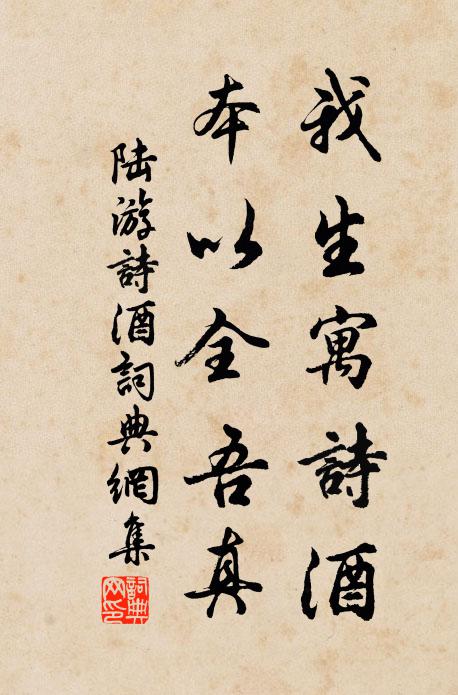 我生寓詩酒
本以全吾真
陆游詩酒詞典網集
詞典网印